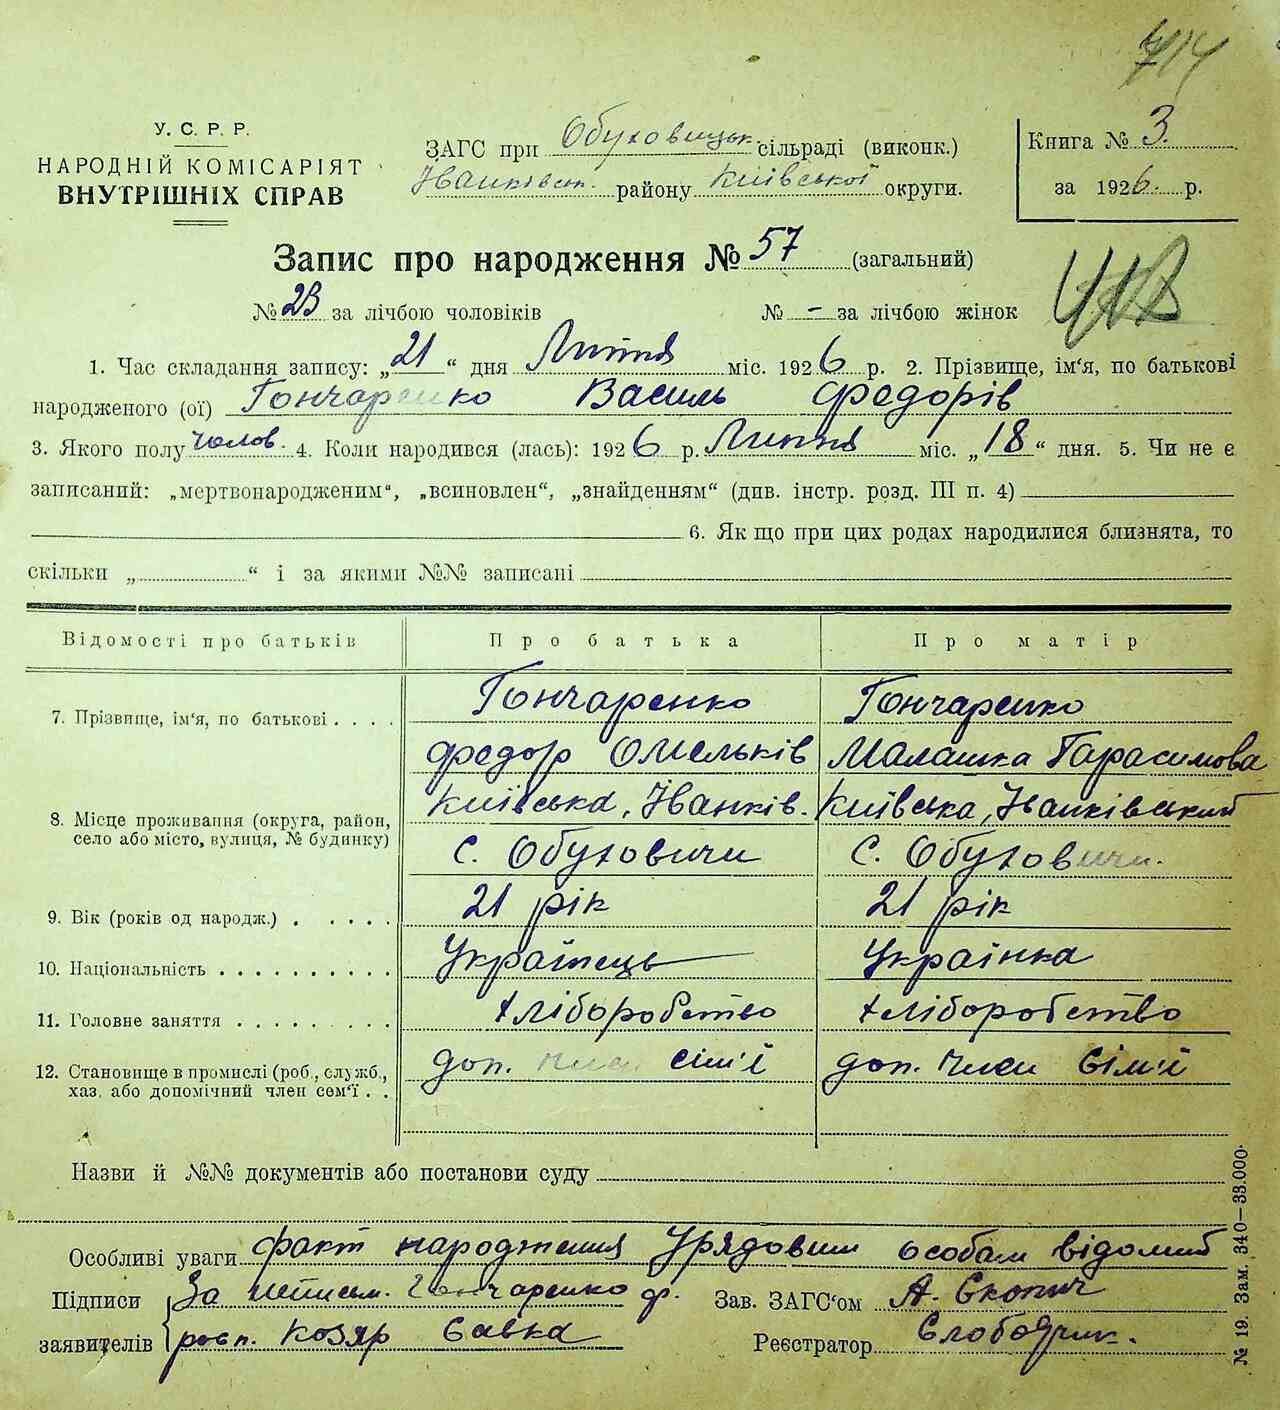 714
У. С. Р. Р.
НАРОДНІЙ КОМІСАРІЯТ
ВНУТРІШНІХ СПРАВ
ЗАГС при Обуховицьк. сільраді (виконк.)
Іванківськ. району Київської округи.
Книга № 3.
за 1926. р.
Запис про народження № 57 (загальний)
№ 23 за лічбою чоловіків № - за лічбою жінок
1. Час складання запису: „21“ дня Липня міс. 1926 р. 2. Прізвище, ім‘я, по батькові
народженого (ої) Гончаренко Василь Федорів
3. Якого полу челов. 4. Коли народився (лась): 1926 р. Липня міс. „18“ дня. 5. Чи не є
записаний: „мертвонародженим“, „всиновлен“, „знайденням“ (див. інстр. розд. III п. 4)
6. Як що при цих родах народилися близнята, то
скільки „ “ і за якими №№ записані
Відомості про батьків Про батька Про матір
7. Прізвище, ім‘я, по батькові . . . . Гончаренко Гончаренко
Федор Омельків Малашка Гарасимова
8. Місце проживання (округа, район, Київська, Іванків. Київська, Іванківський
село або місто, вулиця, № будинку) с. Обуховичи с. Обуховичи.
9. Вік (років од народж.) . . . . . 21 рік 21 рік
10. Національність . . . . . . . . . . Українець Українка
11. Головне заняття . . . . . . . . . хліборобство хліборобство
12. Становище в промислі (роб., служб., доп. член сім'ї доп. член сім'ї
хаз. або допомічний член сем‘ї . .
Назви й №№ документів або постанови суду
Особливі уваги факт народження Урядовим особам відомий
Підписи За неписьм. Гончаренко ф. Зав. ЗАГС‘ом А. Скопич
заявителів росп. Козяр Савка Реєстратор
№ 19. Зам. 340—33.000.